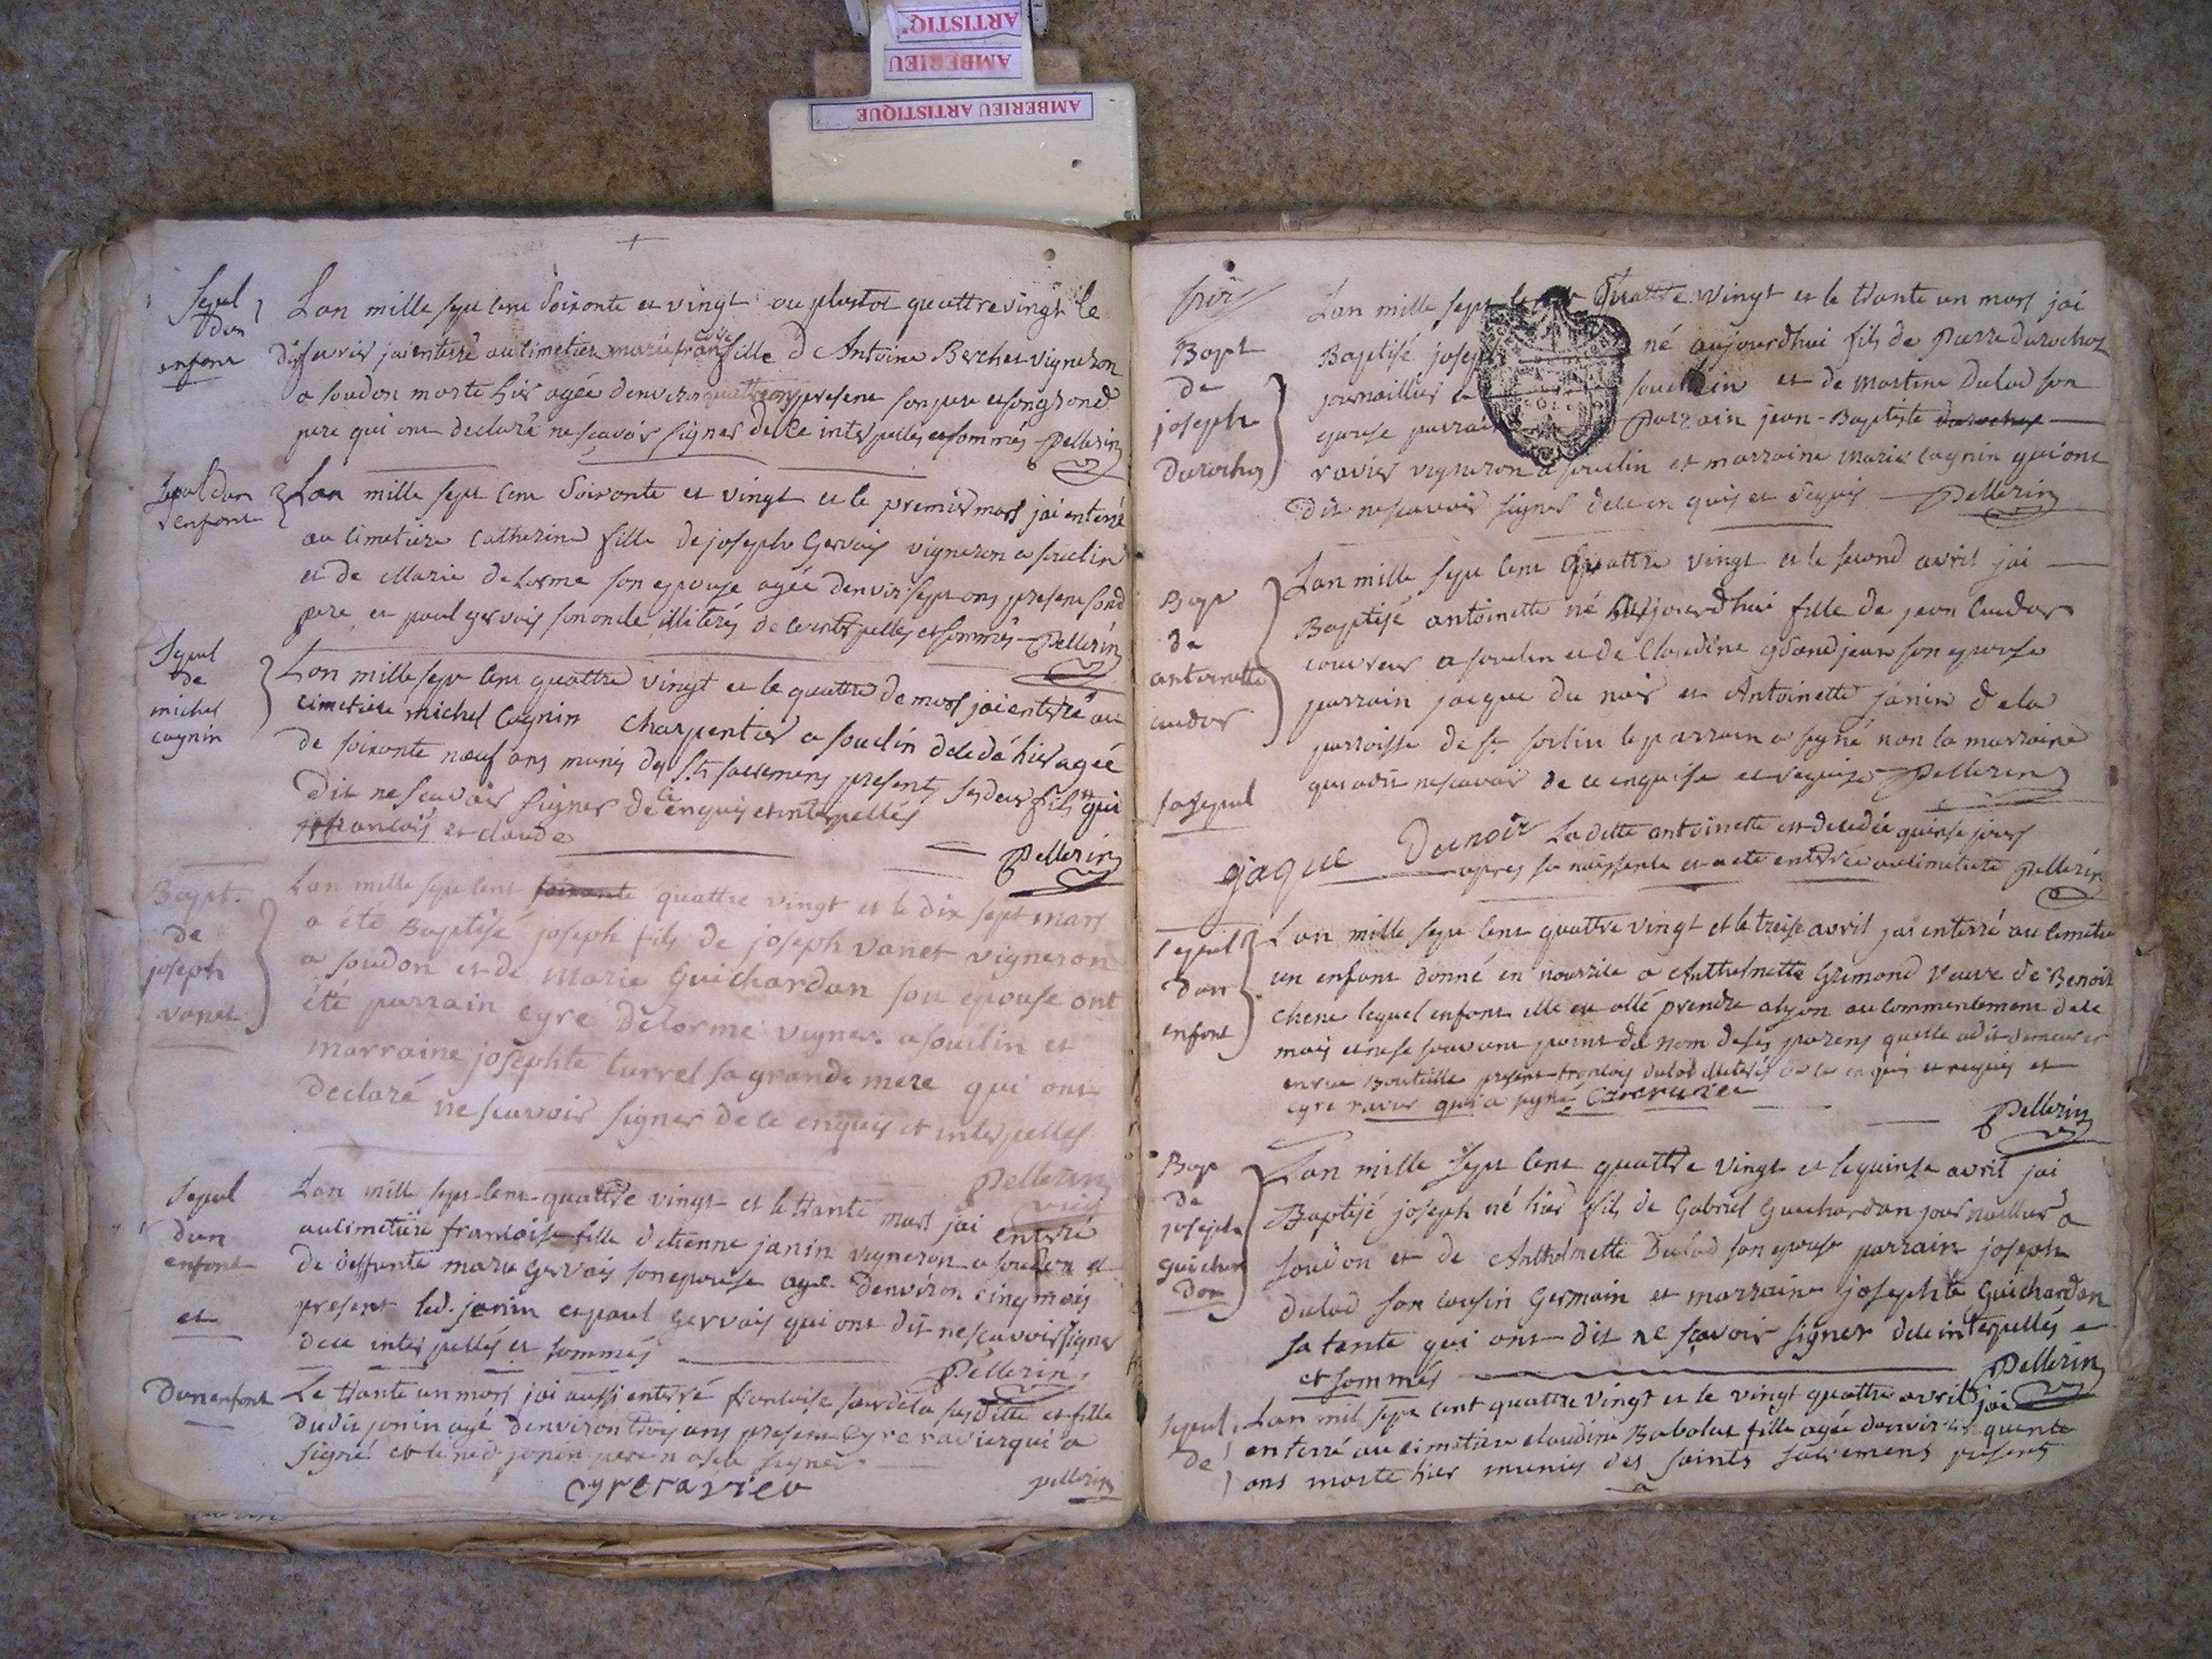 ARTISTIQ'
AMBERIEU
AMBERIEU ARTISTIQUE
Sepul
dun
enfant
Lan mille sept cent soixante et vingt ou plustot quattre vingt le
dix fevrier jai enterré au cimetiere marie fran coise fille d Antoine Berchet vigneron
a soudon morte hier agée denviron quattre ans present son pere et son grand
pere qui ont declaré ne scavoir signer de ce interpellés et sommés Pellerin
Sepul dun
enfant
Lan mille sept cent soixante et vingt et le premier mars jai enterré
au cimetiere Catherine fille de joseph Gervais vigneron a souclin
et de Marie delorme son epouse agée denvir sept ans present son d
pere et paul gervais son oncle illiterés de ce interpellés et sommés Pellerin
Sepul
de
michel
cagnin
Lan mille sept cent quattre vingt et le quattre de mars jai enterré au
cimetiere michel Cagnin charpentier a souclin decedé hier agée
de soixante neuf ans munis des sts sacremens presents ses deux fils qui
dit ne scavoir signer de ce enquis et interpellés
francois et claude
Pellerin
Bapt.
de
joseph
vanet
Lan mille sept cent soixante quattre vingt et le dix sept mars
a été Baptisé joseph fils de joseph vanet vigneron
a soudon et de Marie Guichardan son epouse ont
été parrain cyre Delorme vigner. a souclin et
marraine josephte turrel sa grande mere qui ont
declaré ne scavoir signer de ce enquis et interpellés
Pellerin
Sepul
dun
enfant
et
Lan mille sept cent quattre vingt et le trante mars jai enterré
au cimetiere francoise fille detienne janin vigneron a soudon et
de deffunte marie Gervais son epouse agée denviron cinq mois
present led. janin et paul Gervais qui ont dit ne scavoir signer
de ce interpellés et sommés
Pellerin
Dun enfant
Le trante un mars jai aussi enterré francoise soeur de la susditte et fille
dudit janin agé denviron trois ans present Cyre ravier qui a
signé et le ned. janin pere
cyre ravier
pellerin
Bapt
de
joseph
Durochat
Lan mille sept cent Quattre vingt et le trante un mars jai
Baptisé joseph né aujourdhui fils de Pierre durochat
journaillier souclin et de martine dulad son
parrain jean-Baptiste durochat
ravier vigneron a souclin et marraine marie cagnin qui ont
dit ne scavoir signer de ce en quis et requis Pellerin
Bapt
de
antoinette
cudar
Lan mille sept cent Quattre vingt et le second avril jai
Baptisé antoinette né aujourdhui fille de jean Cudar
couvreur a souclin et de Claudine grandjean son epouse
parrain jacque du nois et Antoinette janin de la
parroisse de st sorlin le parrain a signé non la marraine
qui a dit ne scavoir de ce enquise et requise Pellerin
sa sepul
gjaque Dunoir La ditte antoinette est decedée quinse jours
apres sa naissence et a eté enterrée au cimetiere Pellerin
Sepul
dun
enfant
Lan mille sept cent quattre vingt et le treise avril jai enterré au cimetie
un enfant donné en nourrice a Anthelmette Grimond veuve de Benoit
chene lequel enfant elle est allé prendre a lyon au commencement de ce
mois et ne se scavant point de nom de ses parens quelle a dit demeurer
en rue Bouteille present francois dulad illiteré de ce enquis et requis et
cyre ravier qui a signé Cyreravier
Pellerin
Bap
de
joseph
guichar
don
Lan mille sept cent quattre vingt et le quinse avril jai
Baptisé joseph né hier fils de Gabriel Guichardan journaillier a
soudon et de Anthelmette Dulad son epouse parrain joseph
dulad son cousin germain et marraine josephte Guichardan
sa tante qui ont dit ne scavoir signer de ce interpellés
et sommés Pellerin
Sepul
de
Lan mil sept cent quattre vingt et le vingt quattre avril jai
enterré au cimetiere claudine Babolat fille agée denvir cinquente
ans morte hier munis des saints sacremens presents